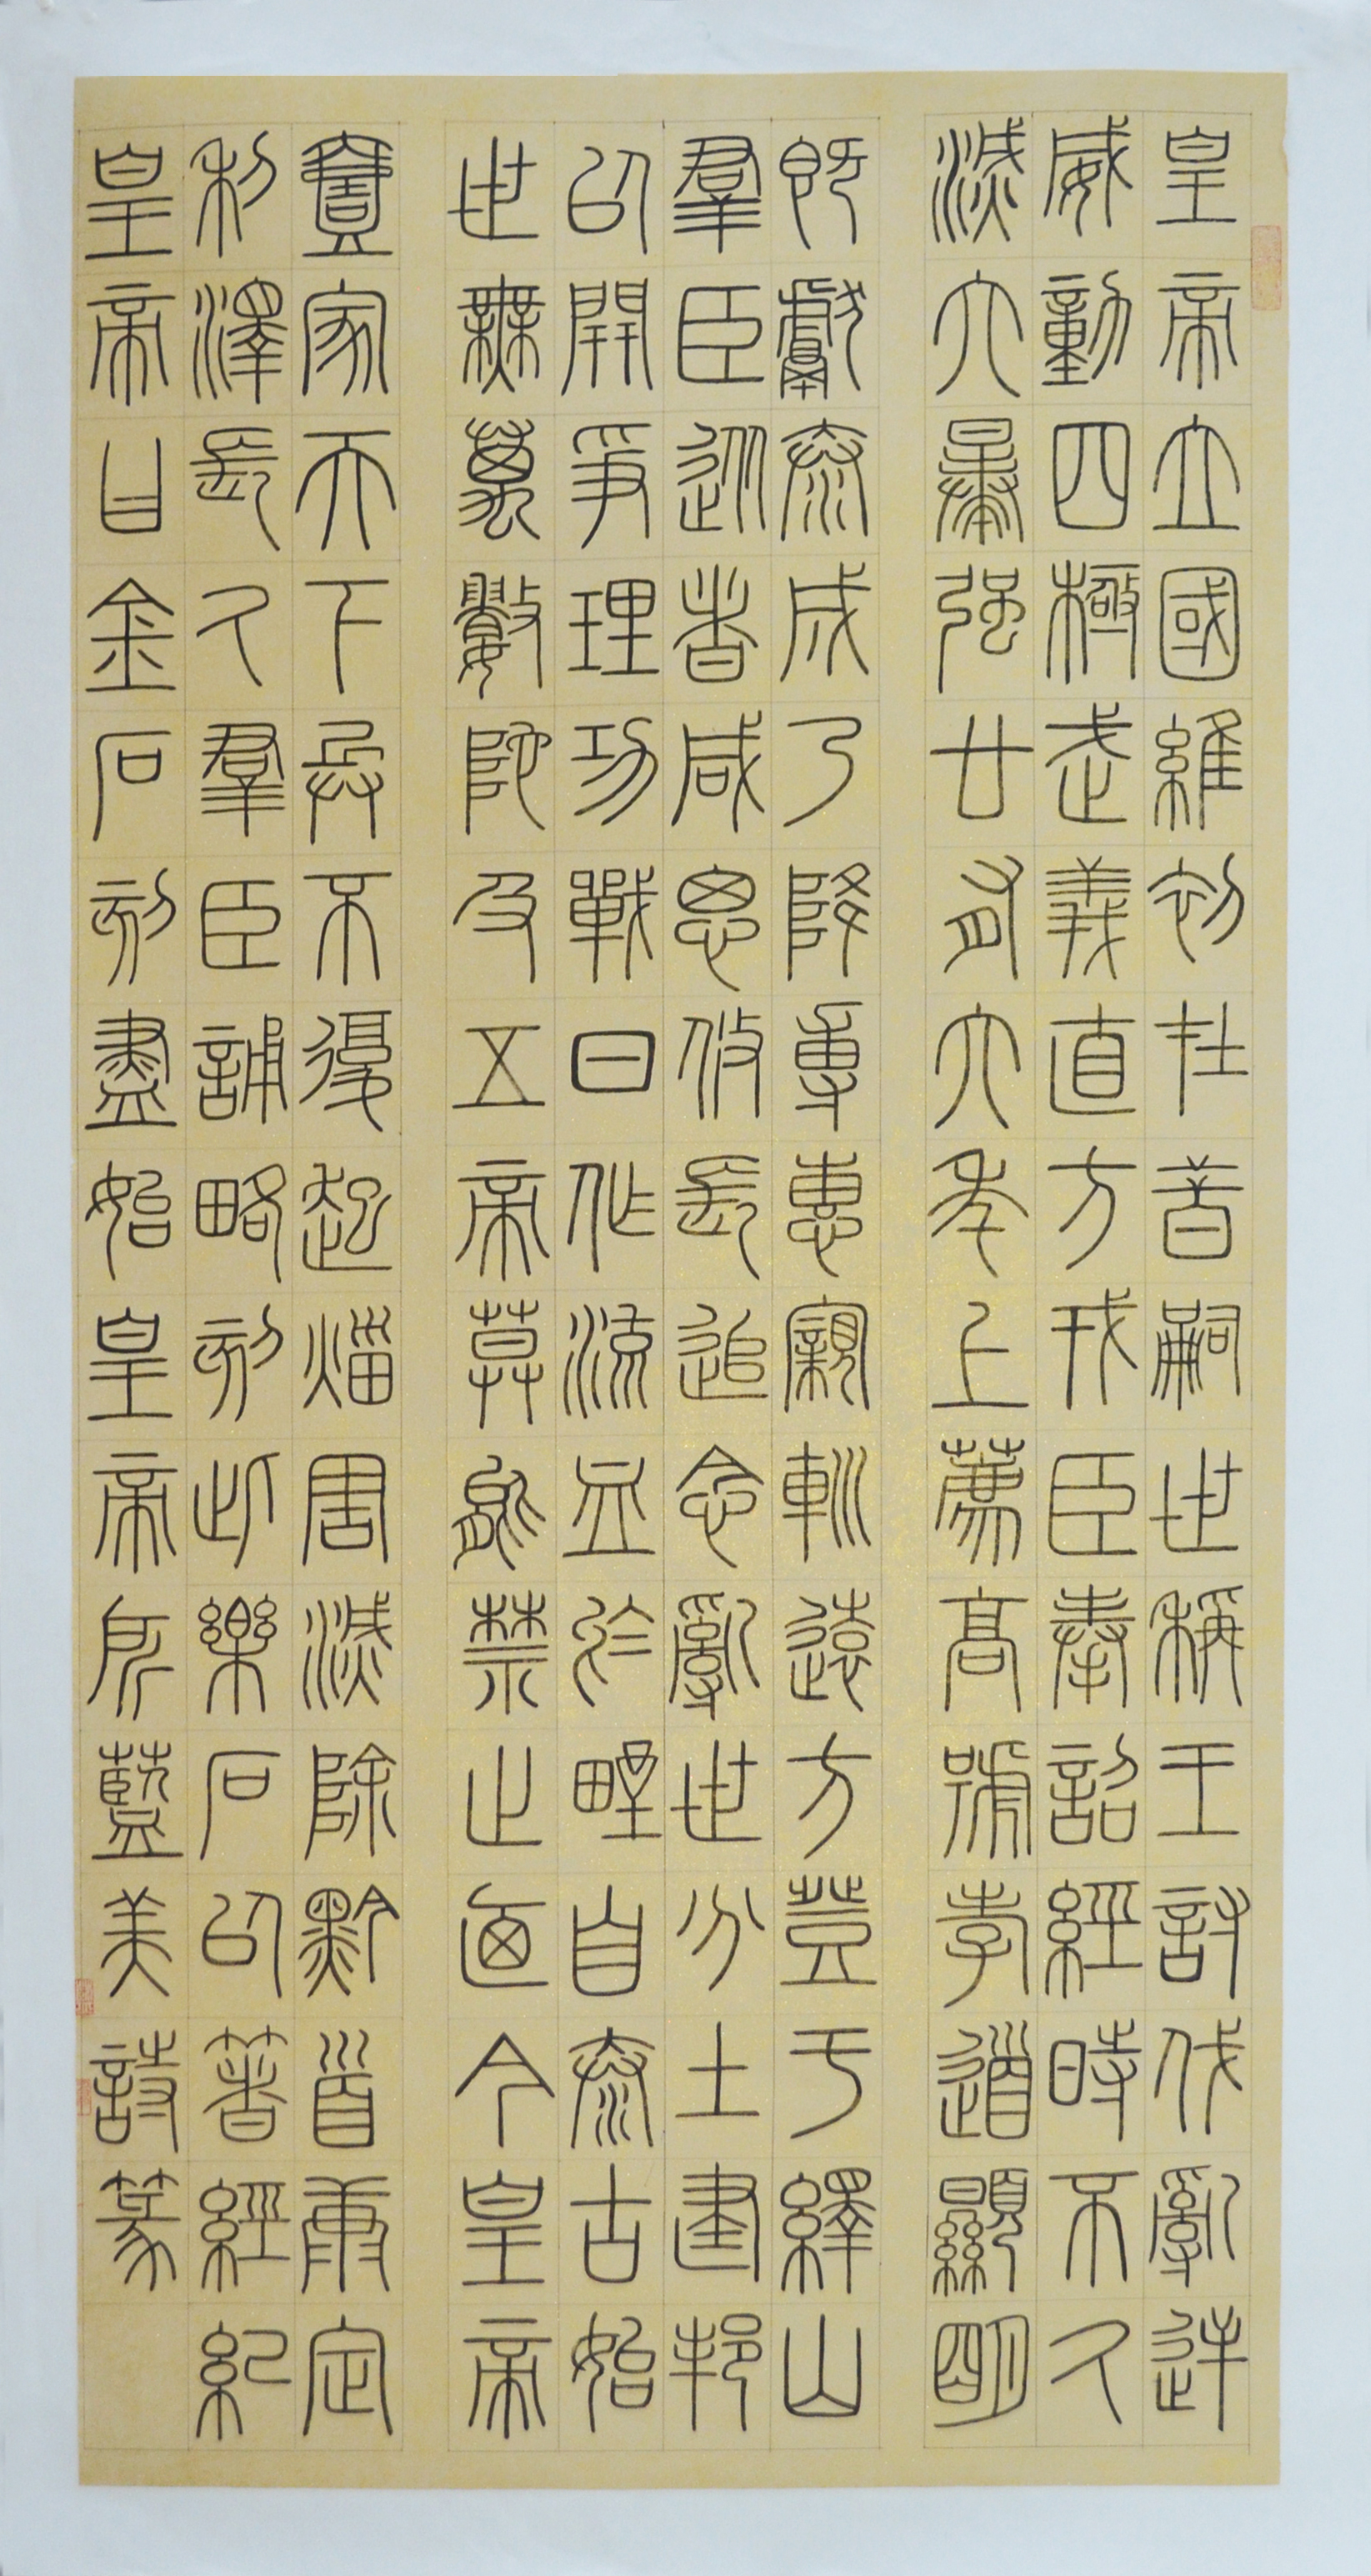 皇帝立國維初在昔嗣世稱王討伐亂逆
威動四極武義直方戎臣奉詔經時不久
滅六暴強廿有六年上薦高號孝道顯明
既獻泰成乃降專惠寴䡅遠方登于繹山
羣臣從者咸思攸長追念亂世分土建邦
以開爭理功戰日作流血於野自泰古始
世無萬數陀及五帝莫能禁止廼今皇帝
壹家天下兵不復起災害滅除黔首康定
利澤長久羣臣誦略刻此樂石以著經紀
皇帝曰金石刻盡始皇帝所藍美詩篆